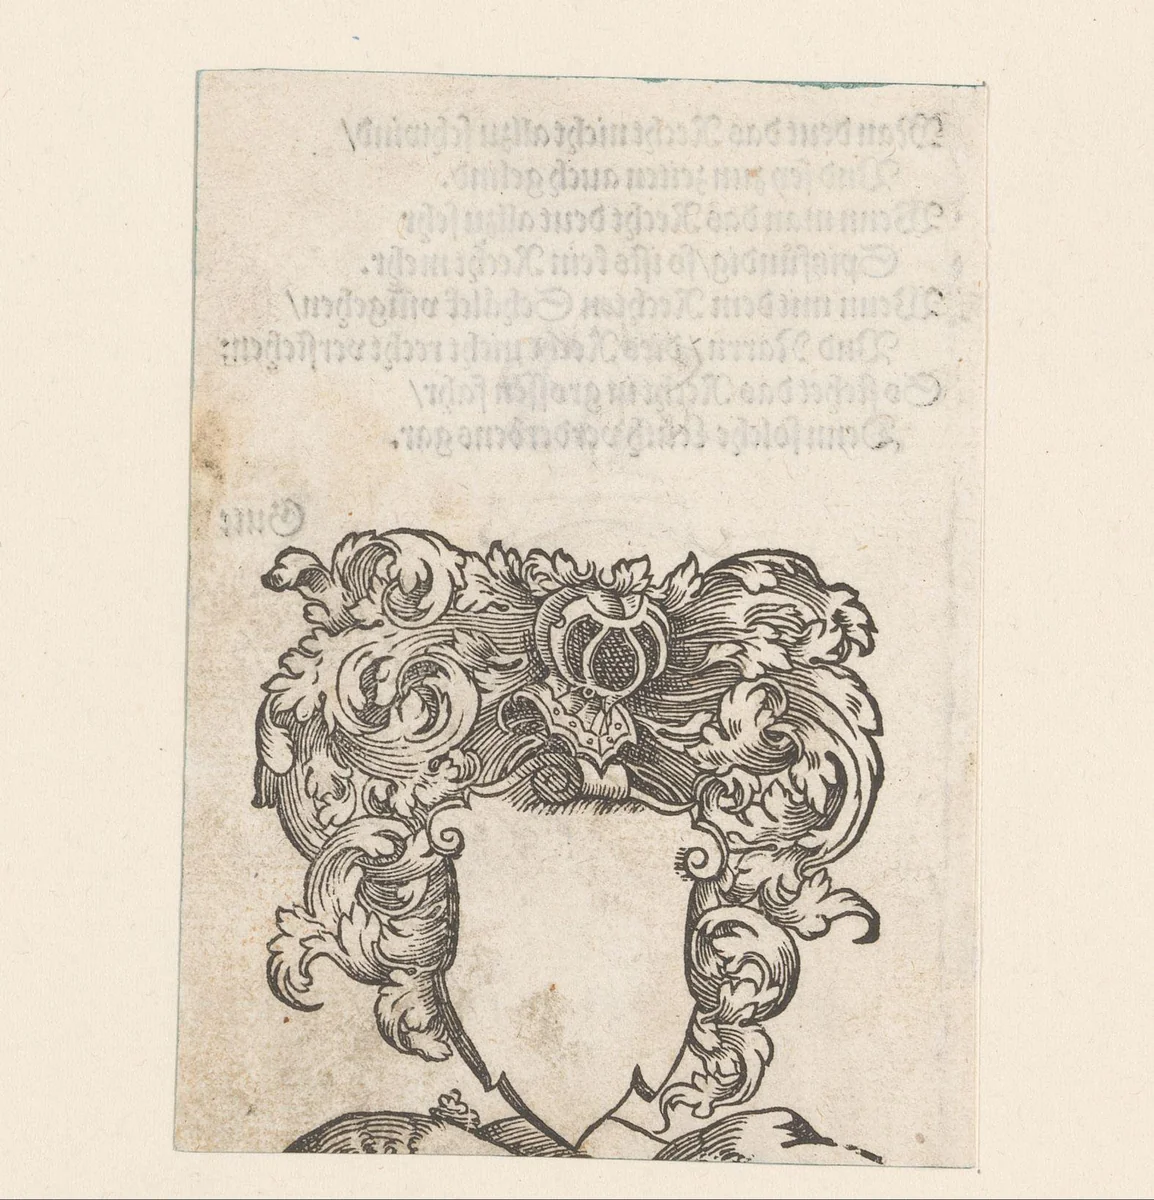 Man deut das Recht nicht allzu schwind/
Vnd sey zun zeiten auch gelind.
Wenn man das Recht deut allzu sehr
Spitzfündig/ so ists kein Recht mehr.
Wenn mit dem Rechten Schälck vmgehen/
Vnd Narrn/ Recht nicht recht verstehen:
So stehet das Recht in grossen fahr/
Denn solche verderbens gar.
Gute